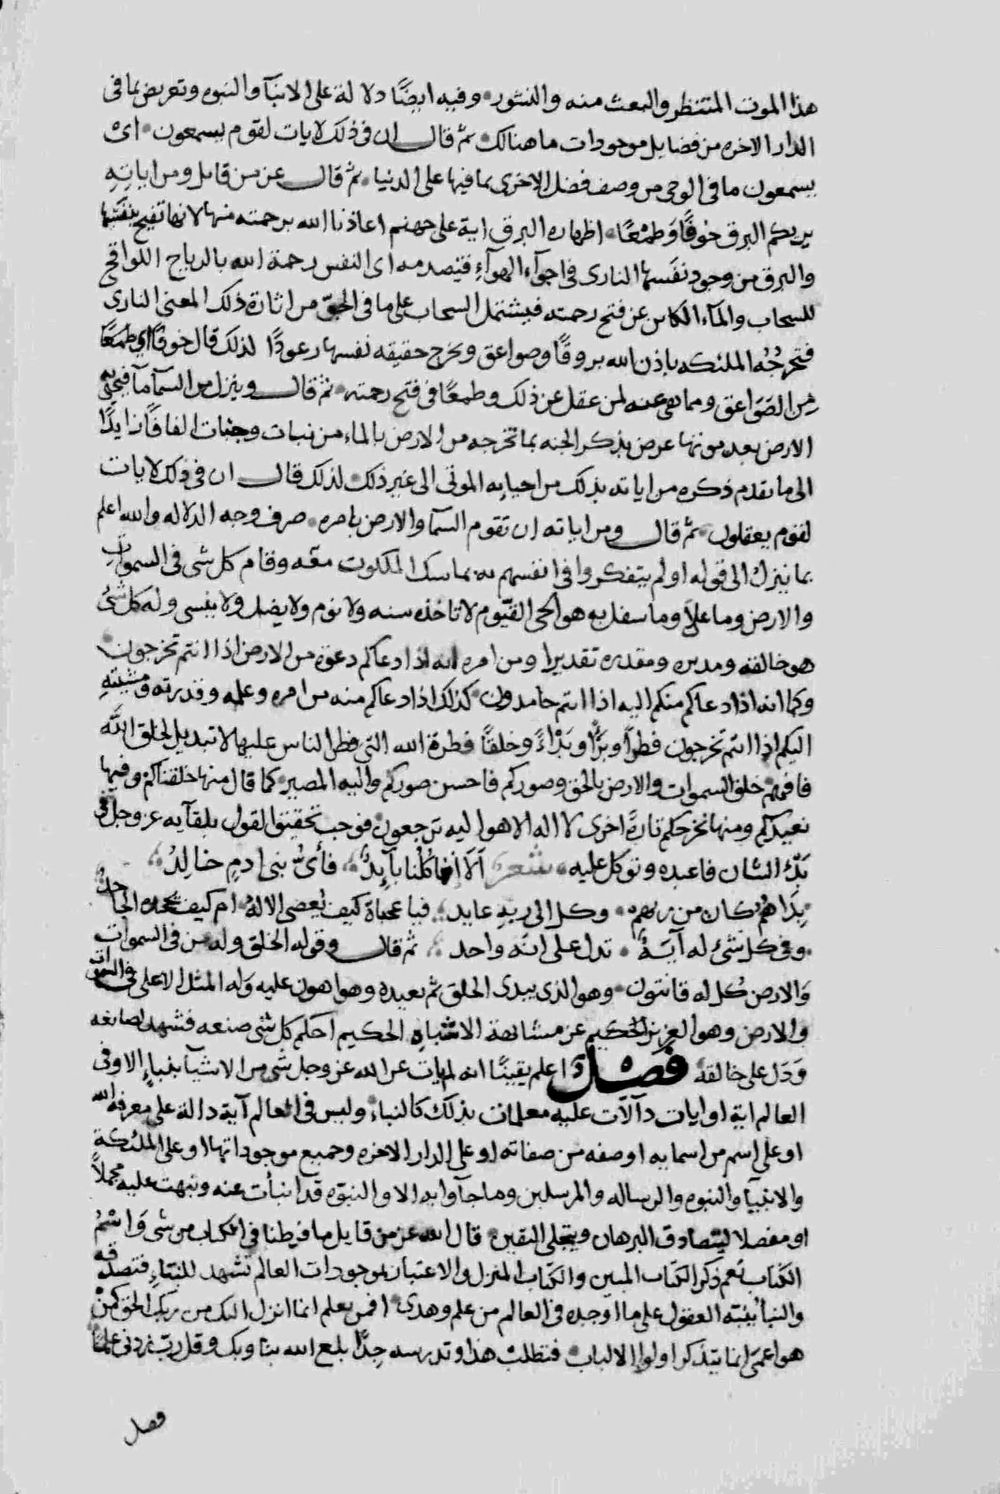 هذا الموت المنتظر والبعث منه والنشور وفيه ايضًا دلالة على الانبآ والنبوه وتعريض بما فى
الدار الاخره من فضايل موجودات ما هنالك ثم قال ان فى ذلك لايات لقوم يسمعون اى
يسمعون ما فى الوحى من وصف فضل الاخرى بما فيها على الدنيا ثم قال عز من قايل ومن اياتِهِ
يريكم البرق خوفًا وَطمَعًا اظهاره البرق اية على جهنم اعاذنا الله برحمته منها لانها تفيح بنفَسَيها
والبرق من وجود نفَسها النارى فى اجوآء الهوآء فيتصدمه اى النفس رحمة الله بالرياح اللواقح
للسحاب والمآء الكاين عن فتح رحمته فيشتمل السحاب على ما فى الجوّ من اثارة ذلك المعنى النارى
فتخرجُهُ الملئكه باذن الله بروقًا وصواعق ويخرج حقيقه نفسها رعودًا لذلك قال خوفًا وطمعًا
من الصَوَاعق ومما هى عنه لمن عقل عن ذلك وطمعًا فى فتح رحمته ثم قال وينزل من السمآ مآ فيحيى به
الارض بعد موتها عرض بذكر الجنه بما تخرجه من الارض بالماء من نبات وجنات الفافًا زايدًا
الى ما تقدم ذكره من اياته بذلك من احيايه الموتى الى غير ذلك لذلك قال ان فى ذلك لايات
لقوم يعقلون ثم قال ومن اياته ان تقوم السمآ والارض بامره صرف وجه الدلاله والله اعلم
بما نزل الى قوله اولم يتفكروا فى انفسهم به تماسك الملكوت معه وقام كل شى فى السموات
والارض وما علا وما سفل به هو الحى القيّوم لا تاخذه سنه ولا نوم ولا يضل ولا ينسى وله كل شئ
هو خالقه ومدبره ومقدره تقديرا ومن امره انه اذا دعاكم دعوة من الارض اذا انتم تخرجون
وكما انه اذا دعاكم منكم اليه اذا انتم حامدون كذلك اذا دعاكم منه من امره وعلمه وقدرته ومشيته
اليكم اذا انتم تخرجون فطرًا وبرًّا وبَدْاءً وخلقًا فطرة الله التى فطر الناس عليها لا تبديل لخلق الله
فافهم خلق السموات والارض بالحق وصوركم فاحسن صوركم واليه المصير كما قال منها خلقناكم وفيها
نعيدكم ومنها نخرجكم تارةً اخرى لا اله الا هو اليه ترجعون فوجب تحقيق القول بلقآيه عز وجل فى
بَدْء الشان فاعبده وتوكل عليه شعر اَلَا اِنّنا كُلّنا بآيِدٌ فأىّ بنى ادمٍ خالِدُ
بِدَاهُم كان من ربهم وكل الى ربهِ عايد فيا عجباه كيف يُعصى الالهُ ام كيف يجحده الجاحدُ
وفى كل شئ له آيَةٌ تدل على انه واحد ثم قال وقوله الخلق وله من فى السموات
وَالارض كُل له قانتون وهو الذى يبدى الخلق ثم يعيده وهو اهون عليه وَله المثل الاعلى فى السموات
والارض وهو العزيز الحكيم عز مشابهة الاشباه الحكيم احكم كل شى صنعه فشهد لصانعه
وَدَل على خالقه فَصْلٌ اعلم يقينًا انه لم يات عن الله عز وجل شى من الاشيآ بنباءٍ الا وفى
العالم اية او ايات دآلات عليه معلمات بذلك كالنباء وليس فى العالم آية دالة على معرفة الله
او على اسم من اسمايه او صفه من صفاته او على الدار الاخره وجميع موجوداتها او على الملئكة
والانبيآ والنبوه والرساله والمرسلين وما جآوا به الا والنبوّه قد انبأت عنه ونبهت عليه مجملاً
او مفصلا ليتصادق البرهان ويتجلى اليقين قال الله عز من قايل ما فرطنا فى الكتاب من شى وَاسْمُ
الكتاب يعم ذكر الكتاب المبين والكتاب المنزل والاعتبار بموجودات العالم تشهد للنبَاءِ فتصدقه
والنبأ ينبّه العقول على ما اوجده فى العالم من علم وهدى افمن يعلم انما انزل اليك من ربك الحق كمن
هو اعمَى انما يتذكر اولوا الالباب فتطلب هذا وتدبره جِدًّا بلغ الله بنا وبك وقل ربّ زدنى علمًا
فصل